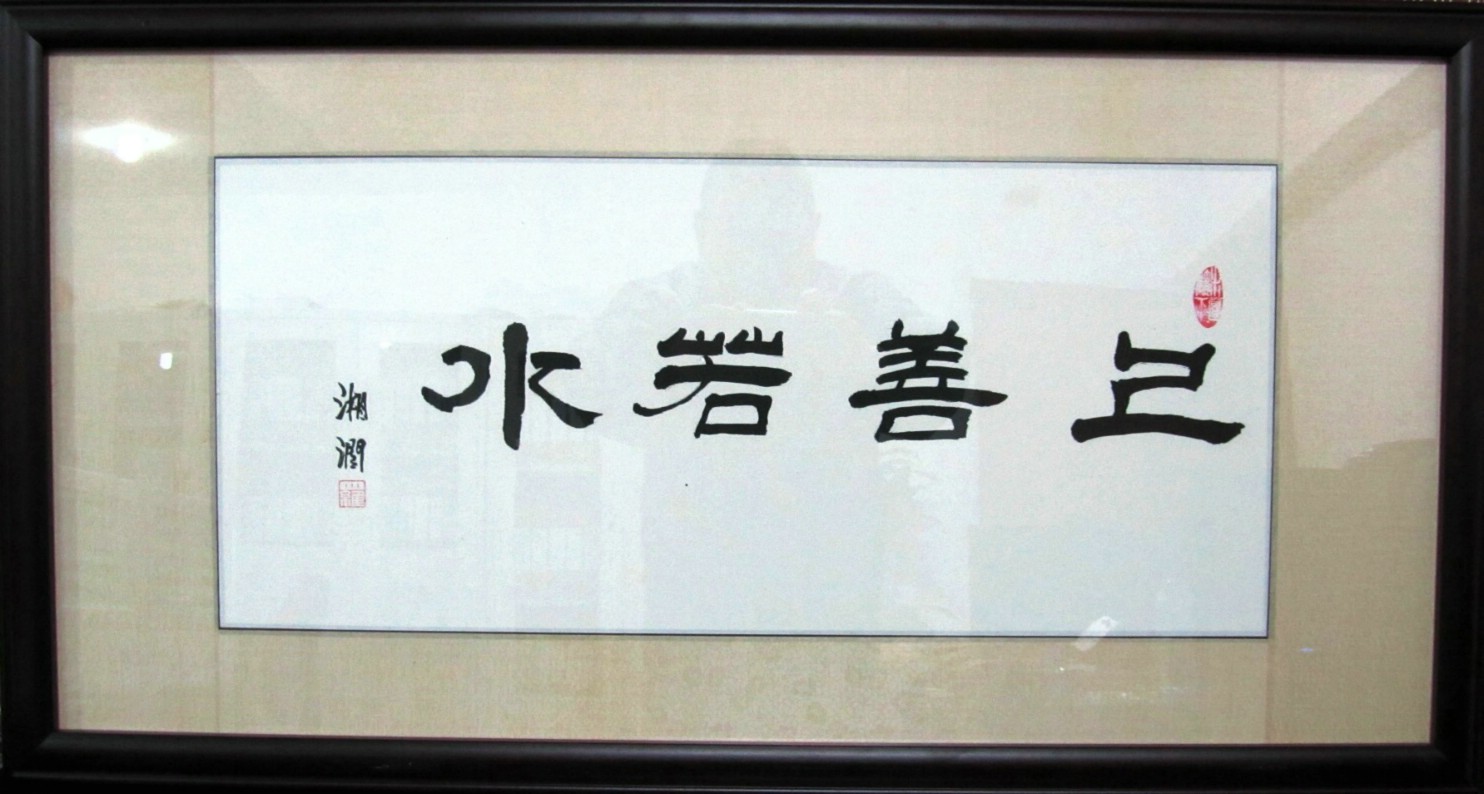 上善若水
湘潤